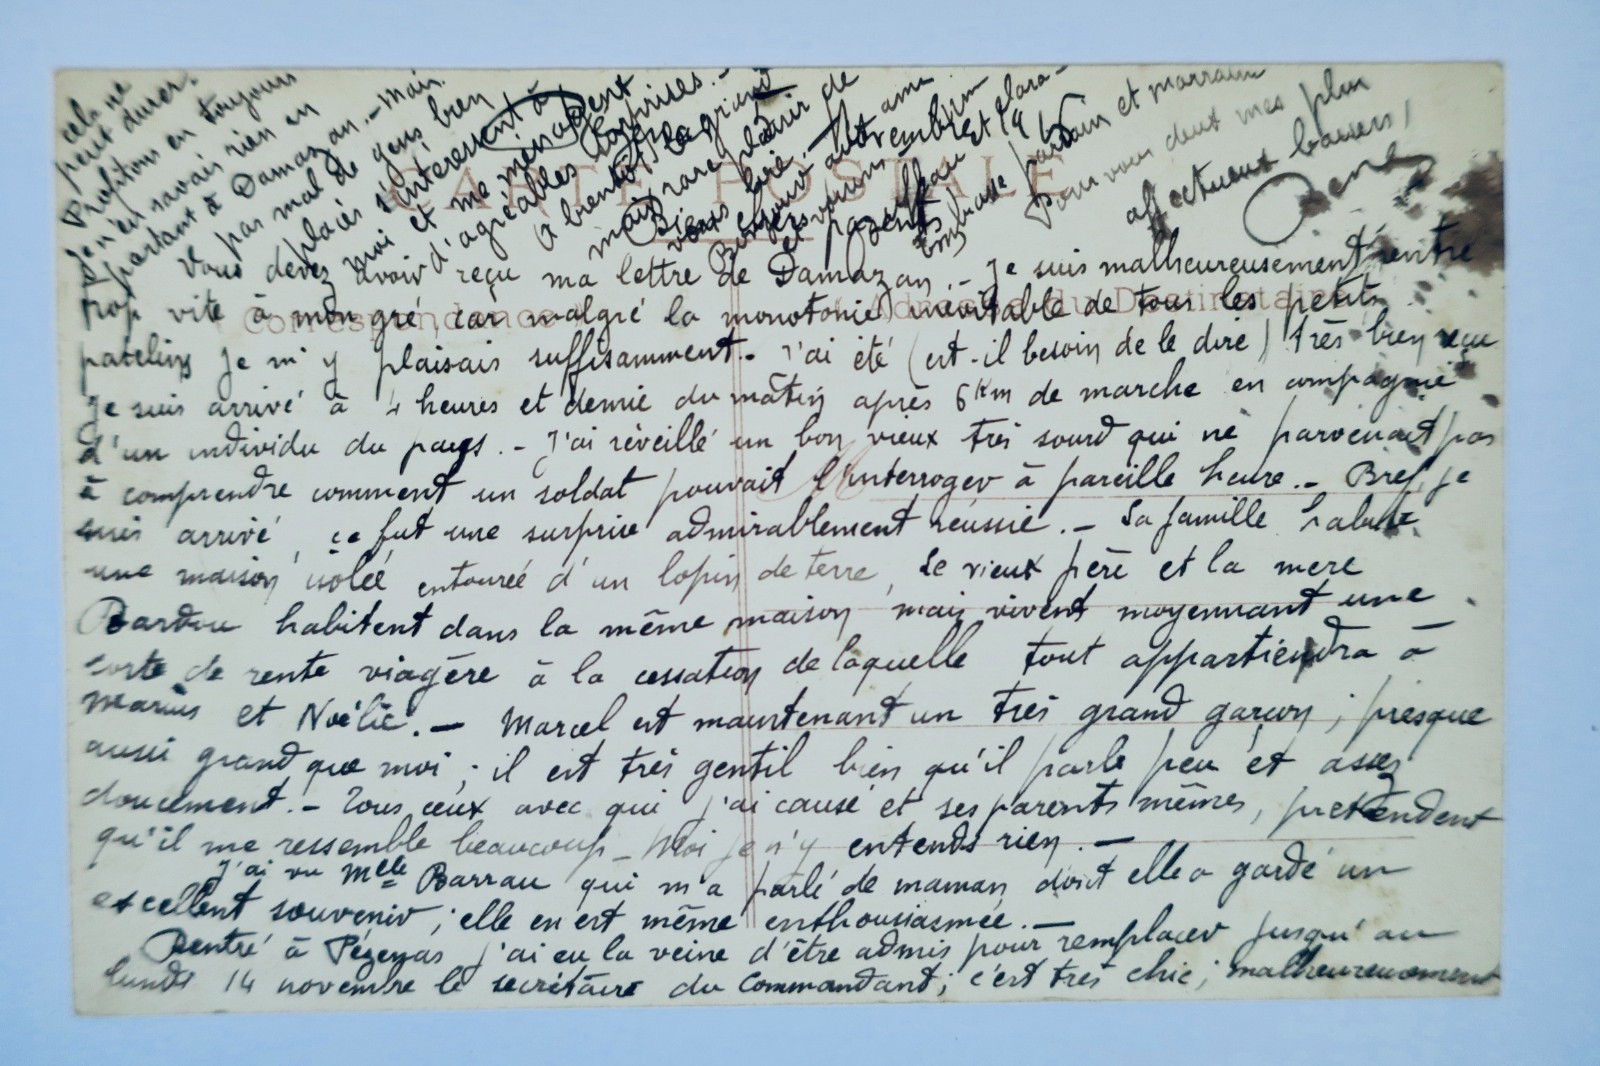 CARTE POSTALE
Correspondance
Adresse du Destinataire
Vous devez avoir reçu ma lettre de Damazan. - Je suis malheureusement rentré
trop vite à mon gré, car malgré la monotonie inévitable de tous les petits
patelins je m'y plaisais suffisamment. - J'ai été (est-il besoin de le dire) très bien reçu
Je suis arrivé à 4 heures et demie du matin après 6 Km de marche en compagnie
d'un individu du pays. - J'ai réveillé un bon vieux très sourd qui ne parvenait pas
à comprendre comment un soldat pouvait l'interroger à pareille heure. - Bref, je
suis arrivé, ce fut une surprise admirablement réussie. - La famille habite
une maison isolée entourée d'un lopin de terre, le vieux père et la mère
Bardou habitent dans la même maison mais vivent moyennant une
sorte de rente viagère à la cessation de laquelle tout appartiendra à
Marius et Noélie. - Marcel est maintenant un très grand garçon ; presque
aussi grand que moi ; il est très gentil bien qu'il parle peu et assez
doucement. - Tous ceux avec qui j'ai causé et ses parents mêmes, prétendent
qu'il me ressemble beaucoup - Moi je n'y entends rien. -
J'ai vu Melle Barrau qui m'a parlé de maman dont elle a gardé un
excellent souvenir ; elle en est même enthousiasmée. -
Rentré à Pézenas j'ai eu la veine d'être admis pour remplacer jusqu'au
lundi 14 novembre le secrétaire du Commandant ; c'est très chic ; malheureusement
cela ne
peut durer.
Profitons en toujours
Je n'en savais rien en
partant à Damazan. - Mais
pas mal de gens bien
placés s'intéressent à
moi et me ménagent
d'agréables surprises. -
à bientôt le grand
mais rare plaisir de
vous lire.
parents
parrain et marraine
pour vous deux mes plus
affectueux baisers,
René